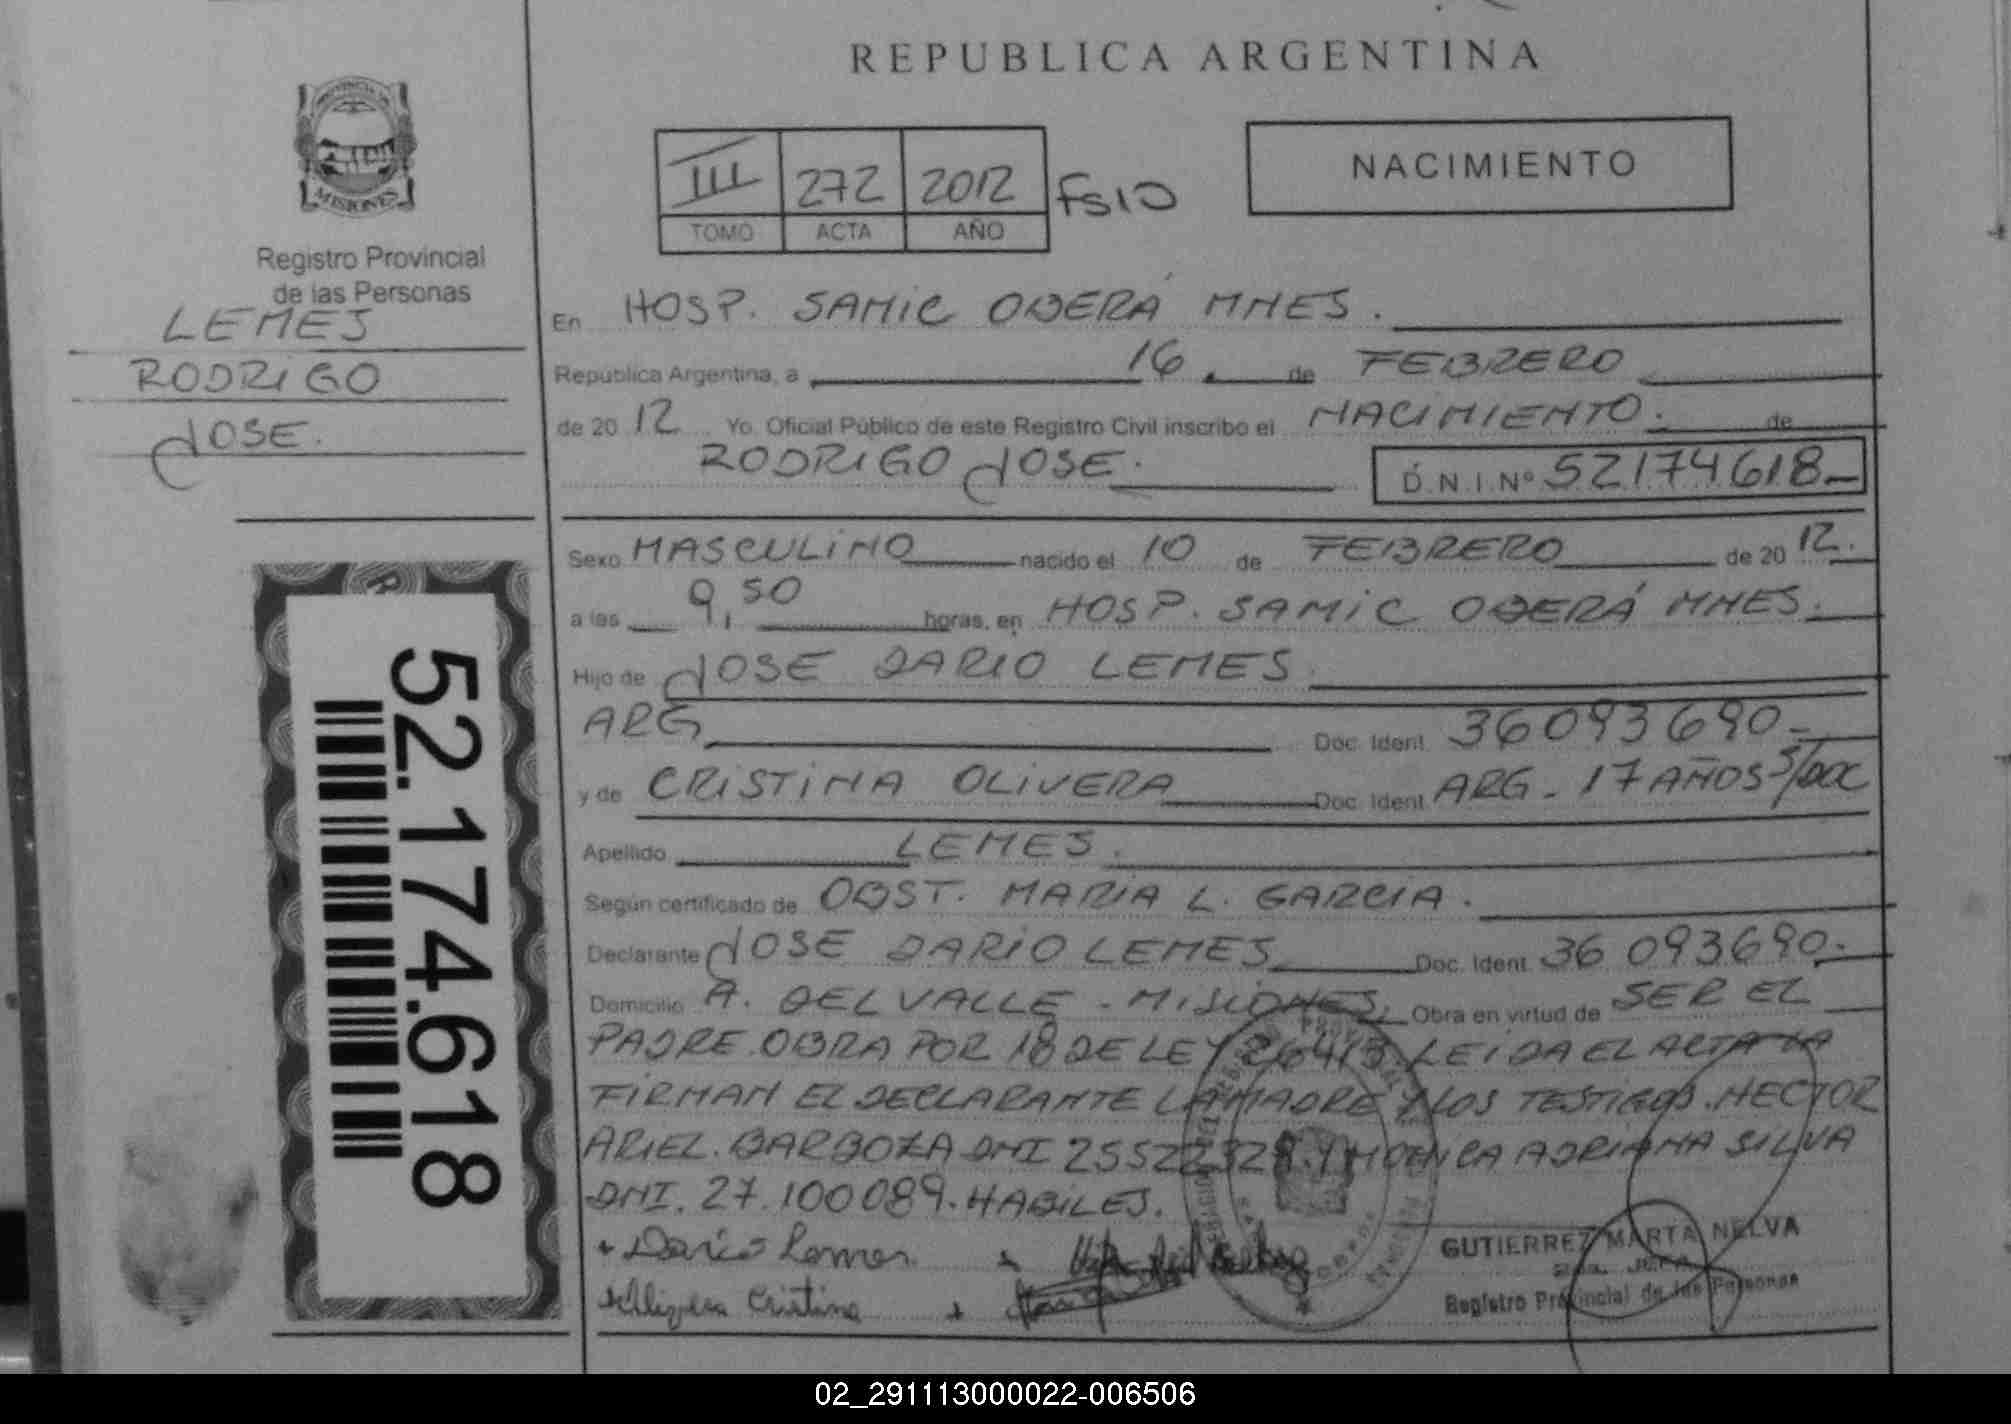 REPUBLICA ARGENTINA
PROVINCIA DE
MISIONES
Registro Provincial
de las Personas
LEMES
RODRIGO
JOSE.
52.174.618
III 272 2012 FS10
TOMO ACTA AÑO
NACIMIENTO
En HOSP. SAMIC OBERÁ MNES.
República Argentina, a 16 de FEBRERO
de 2012 Yo Oficial Público de este Registro Civil inscribo el NACIMIENTO. de
RODRIGO JOSE. D.N.I.Nº 52174618
Sexo MASCULINO nacido el 10 de FEBRERO de 2012.
a las 9,50 horas, en HOSP. SAMIC OBERÁ MNES.
Hijo de JOSE DARIO LEMES.
ARG Doc. Ident. 36093690-
y de CRISTINA OLIVERA Doc. Ident. ARG - 17 AÑOS S/DOC
Apellido LEMES.
Según certificado de OBST. MARIA L. GARCIA.
Declarante JOSE DARIO LEMES Doc. Ident. 36 093690-
Domicilio A. DEL VALLE - MISIONES. Obra en virtud de SER EL
PADRE OBRA POR 18 DE LEY 26413 LEIDA EL ACTA LA
FIRMAN EL DECLARANTE LA MADRE Y LOS TESTIGOS. HECTOR
ARIEL BARBOZA DNI Y MONICA ADRIANA SILVA
DNI. 27.100089. HABILES.
Dario Lemes
Cristina
GUTIERREZ MARTA NELVA
Registro Provincial de las Personas
02_291113000022-006506